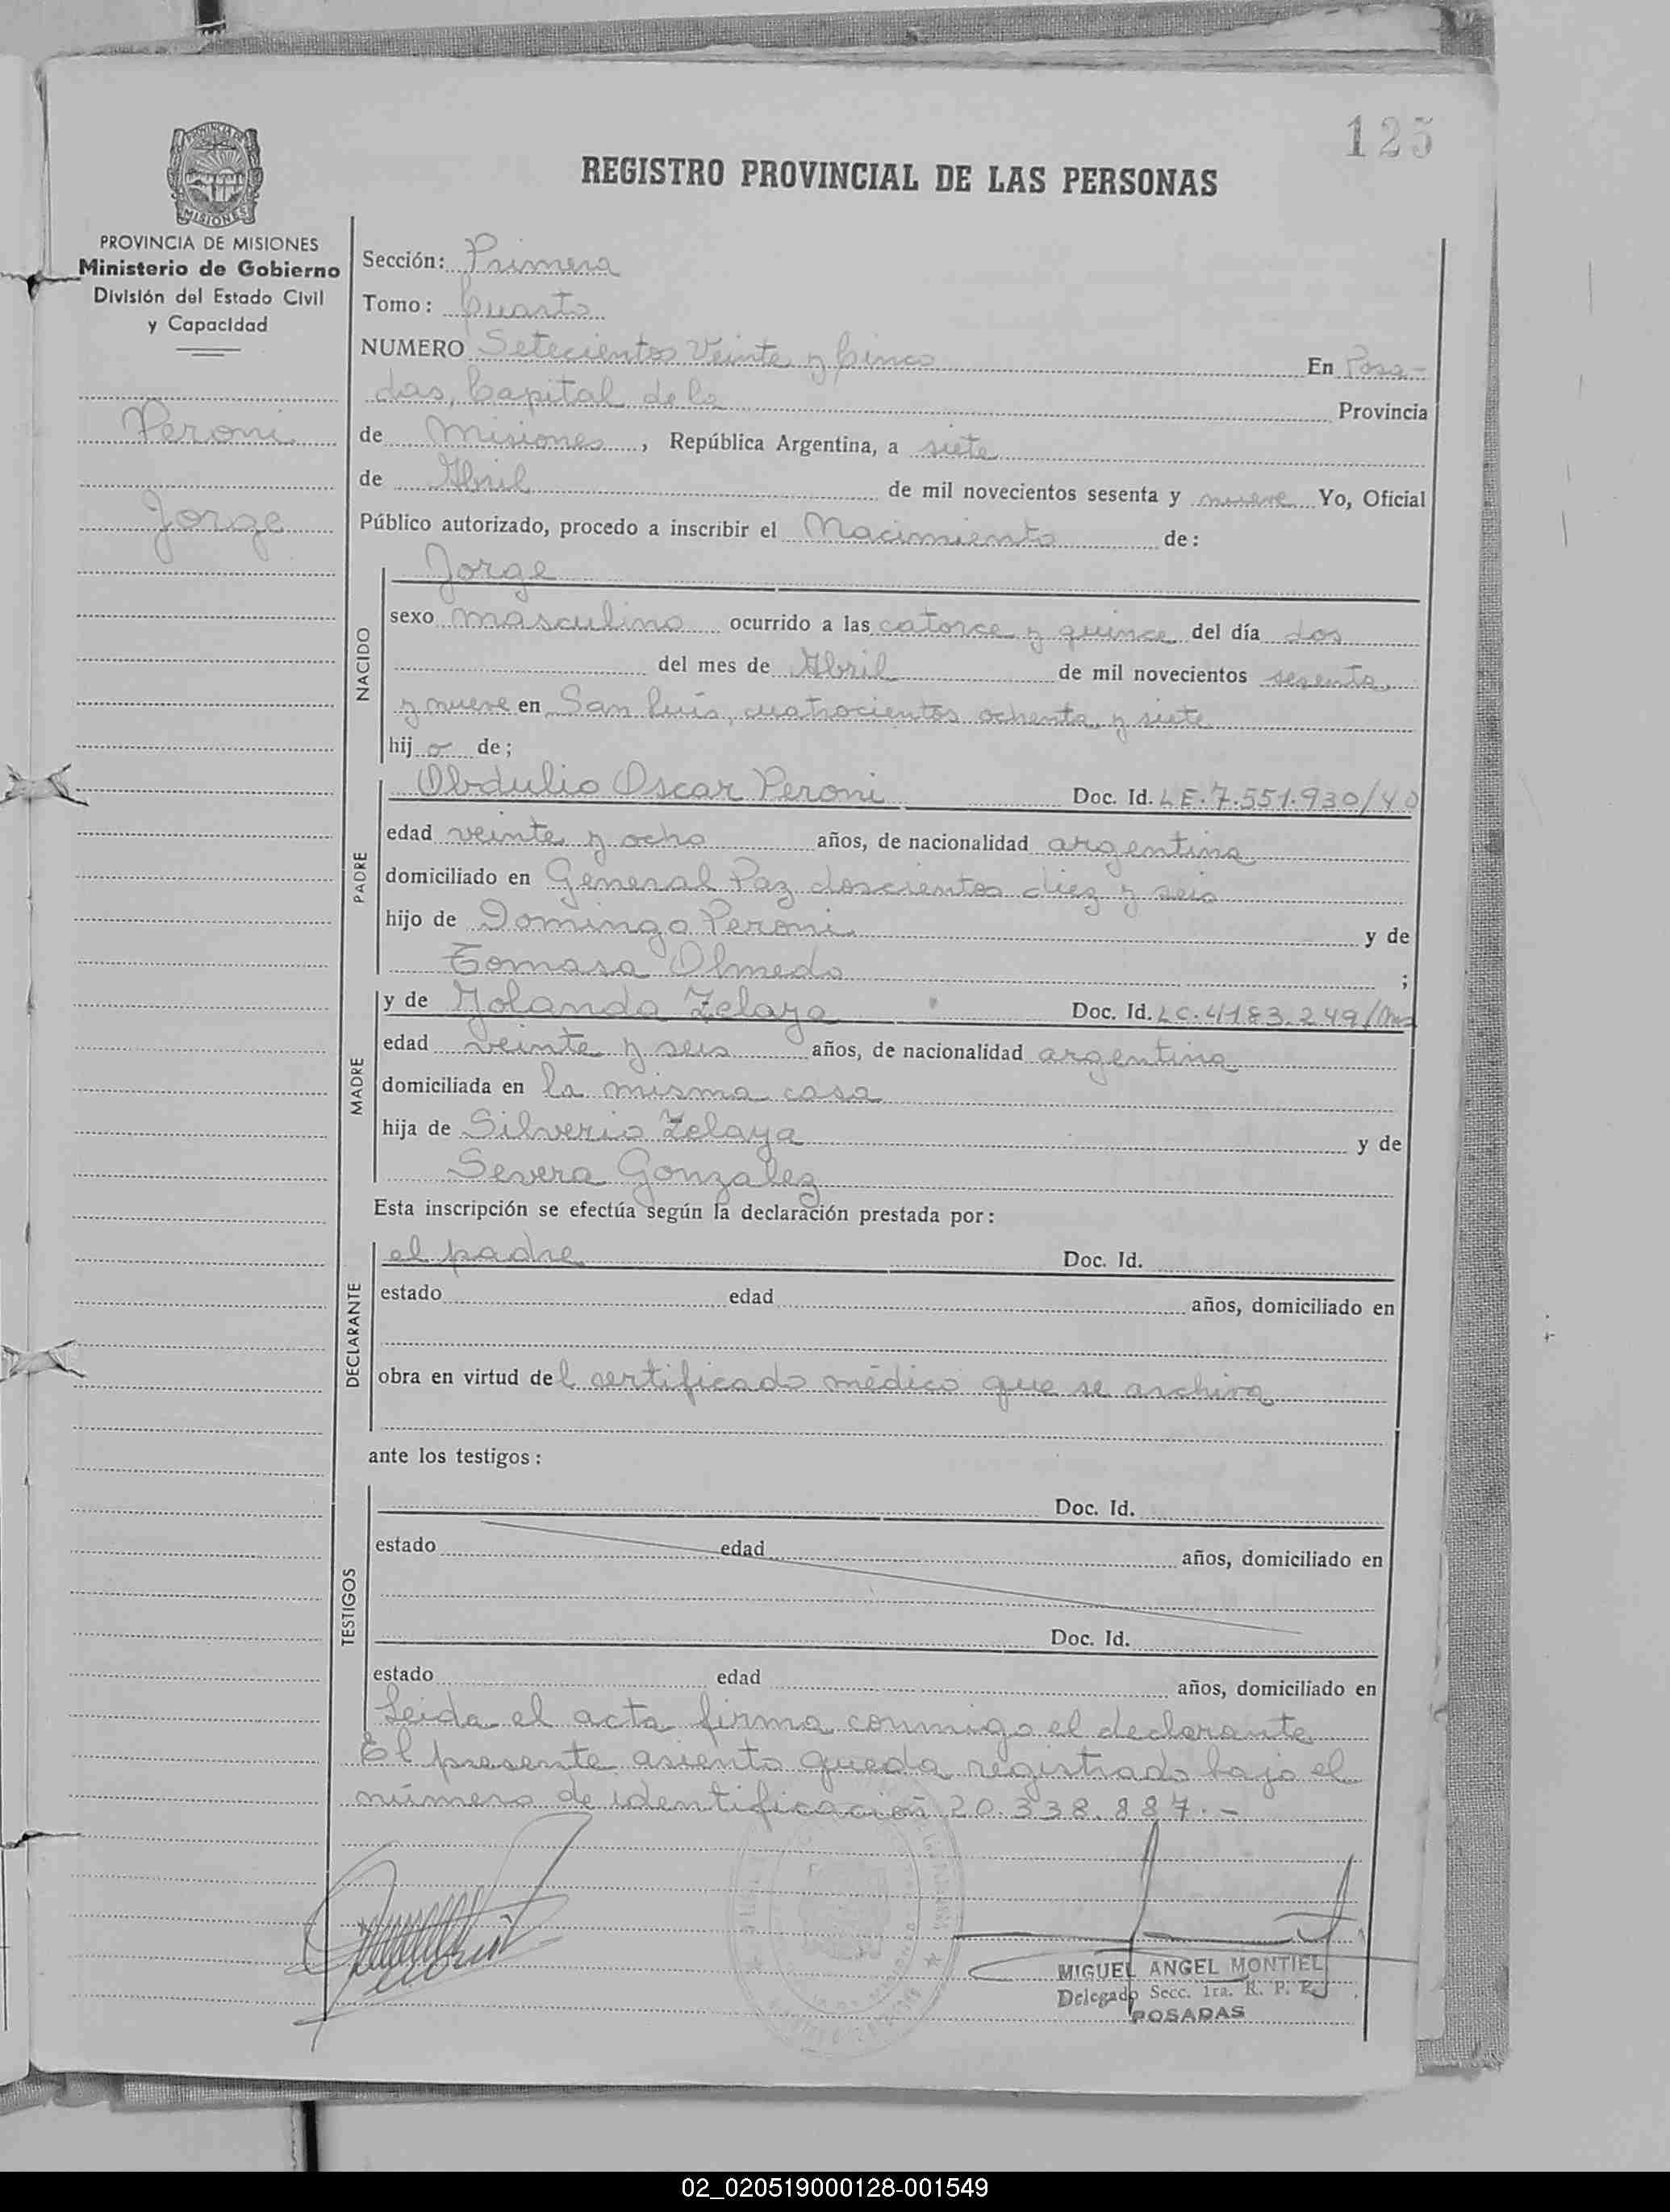 125
REGISTRO PROVINCIAL DE LAS PERSONAS
PROVINCIA DE MISIONES
MISIONES
PROVINCIA DE MISIONES
Ministerio de Gobierno
División del Estado Civil
y Capacidad
Peroni
Jorge
Sección: Primera
Tomo: Cuarto
NUMERO Setecientos Veinte y Cinco En Posa-
das, Capital de la Provincia
de Misiones, República Argentina, a siete
de Abril de mil novecientos sesenta y nueve Yo, Oficial
Público autorizado, procedo a inscribir el Nacimiento de:
NACIDO
Jorge
sexo masculino ocurrido a las catorce y quince del día dos
del mes de Abril de mil novecientos sesenta
y nueve en San Luis, cuatrocientos ochenta y siete
hijo de;
PADRE
Obdulio Oscar Peroni Doc. Id. L E. 7.551.930/40
edad veinte y ocho años, de nacionalidad argentina
domiciliado en General Paz doscientos diez y seis
hijo de Domingo Peroni y de
Tomasa Olmedo ;
MADRE
y de Yolanda Zelaya Doc. Id. L C. 4183.249/
edad veinte y seis años, de nacionalidad argentina
domiciliada en la misma casa
hija de Silverio Zelaya y de
Severa Gonzalez
Esta inscripción se efectúa según la declaración prestada por:
DECLARANTE
el padre Doc. Id.
estado edad años, domiciliado en
obra en virtud del certificado médico que se archiva
ante los testigos:
TESTIGOS
Doc. Id.
estado edad años, domiciliado en
Doc. Id.
estado edad años, domiciliado en
Leida el acta firma conmigo el declarante
El presente asiento queda registrado bajo el
número de identificación 20.338.887.-
MIGUEL ANGEL MONTIEL
Delegado Secc. 1ra. R. P. P.
POSADAS
02_020519000128-001549